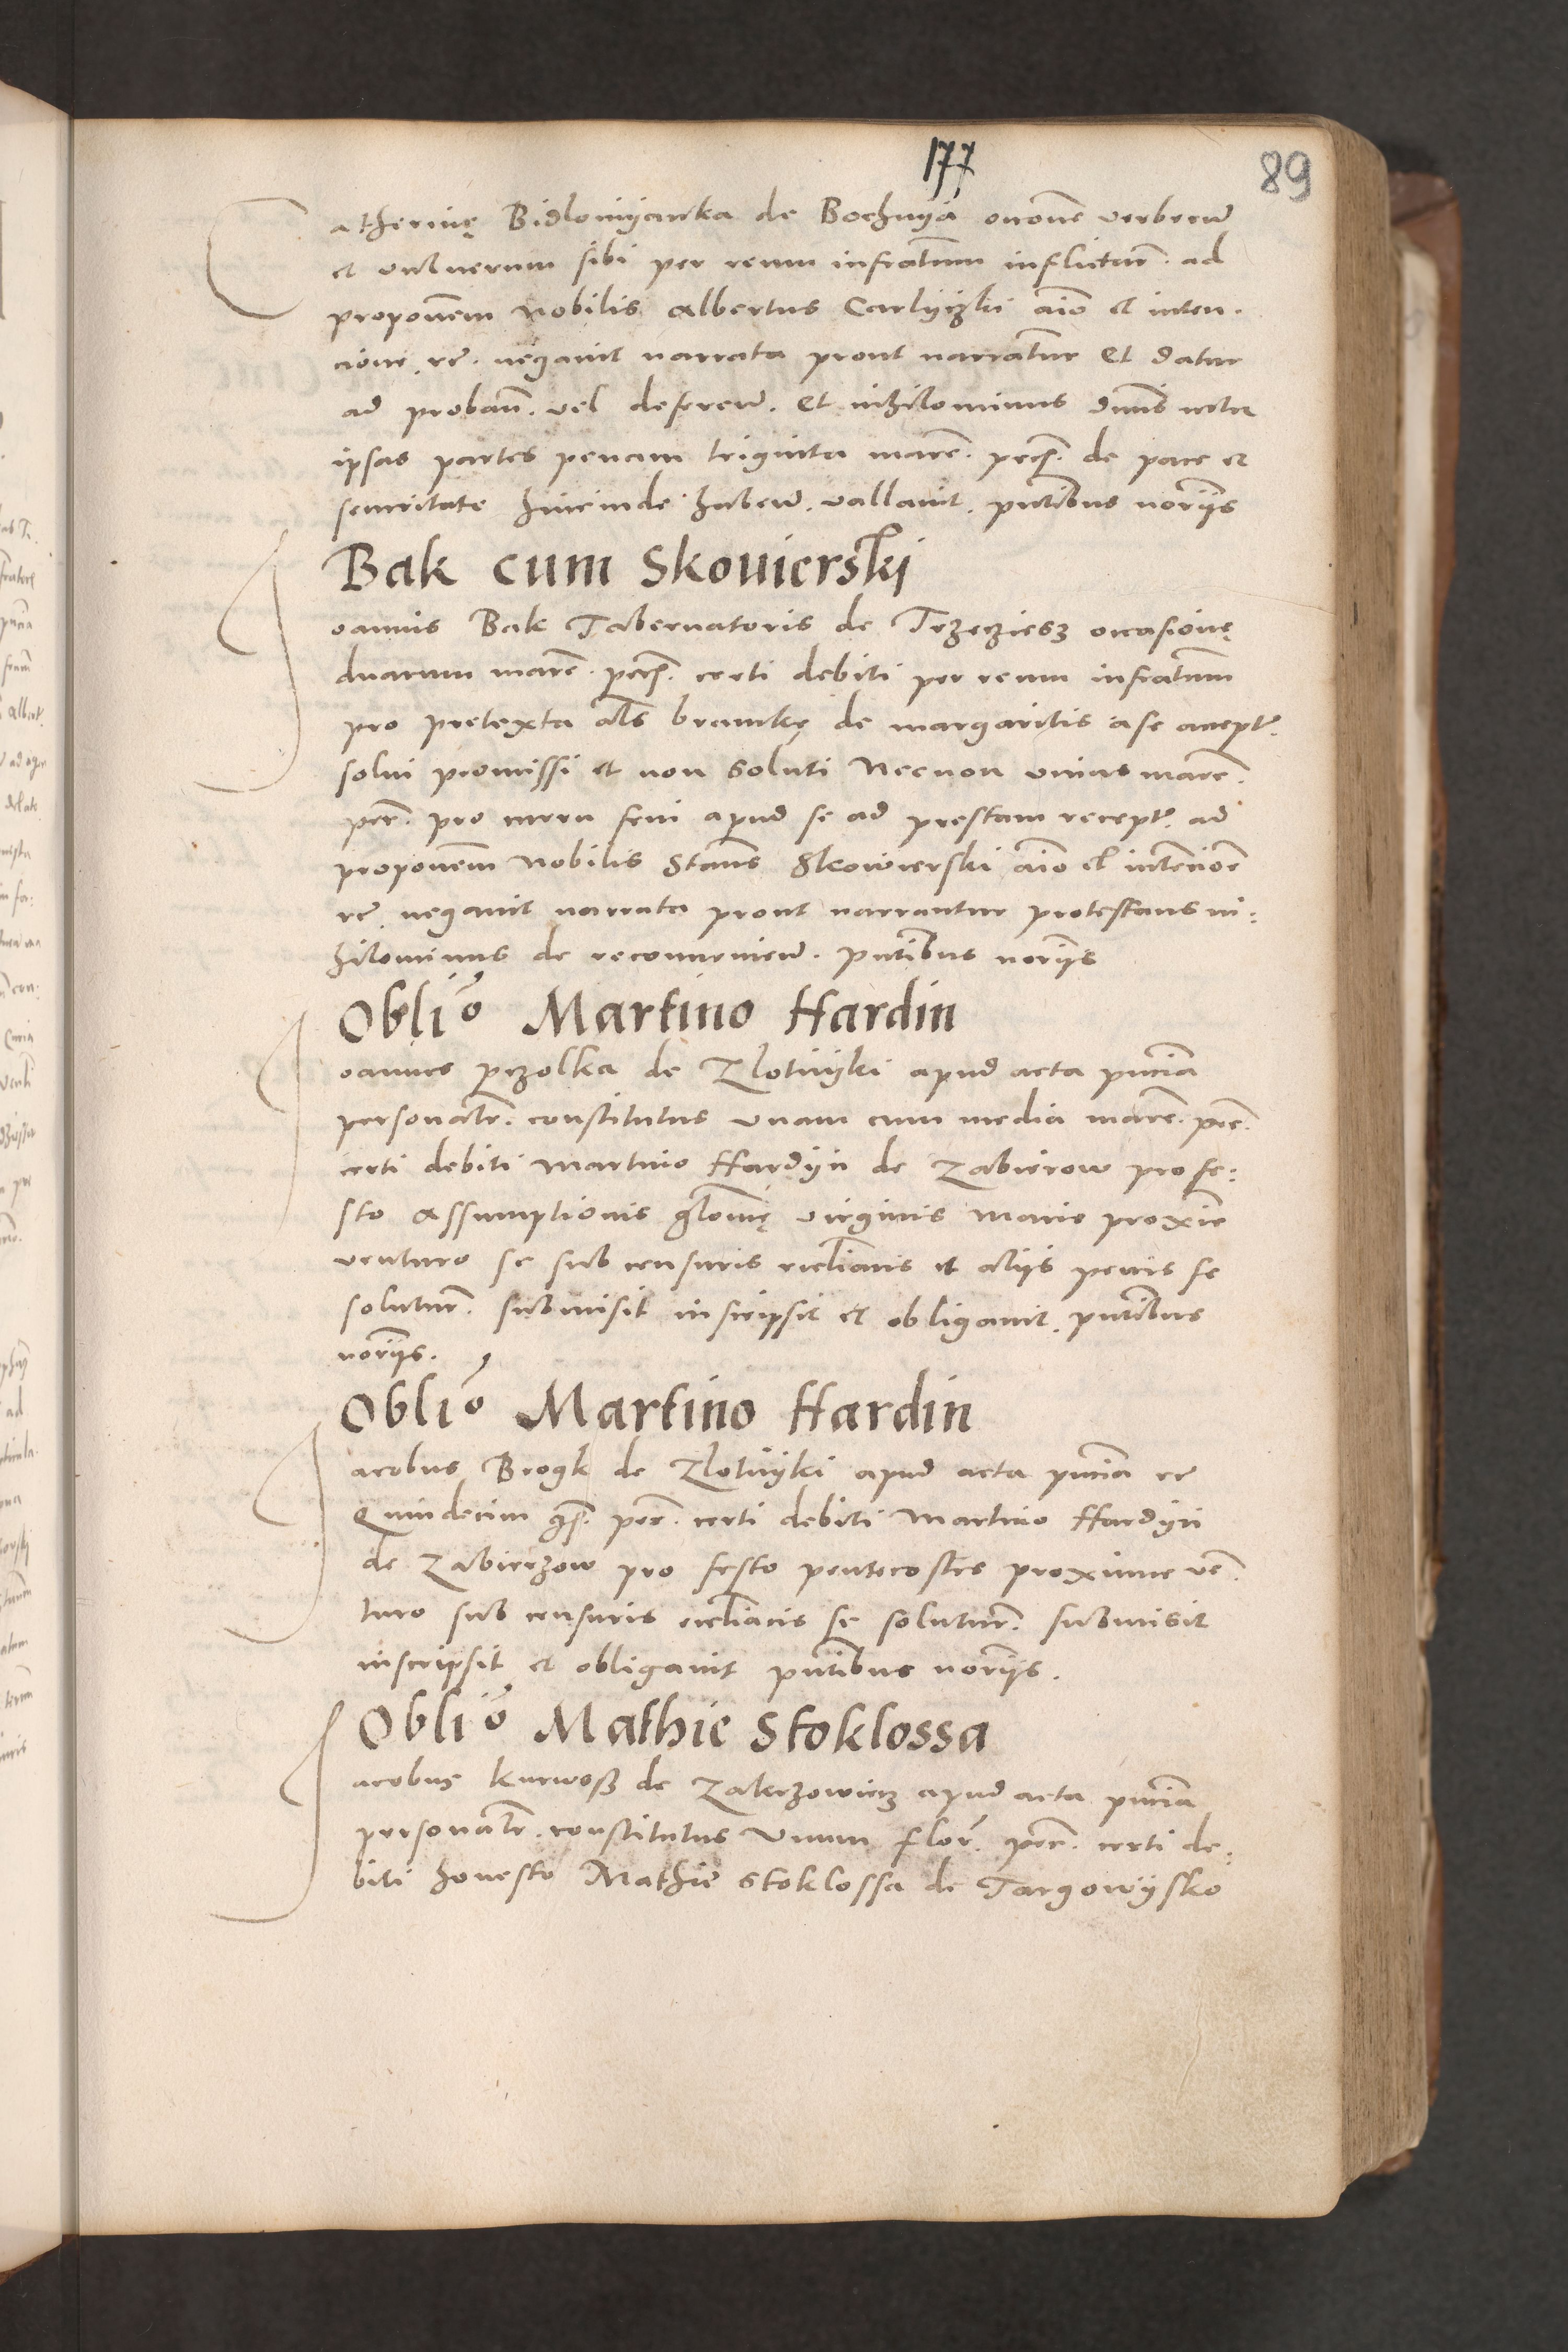 177
89
Catherinę Bidlowyanka de Bochnya occoñe verberũ
et vulnerum sibi per reum infrañtum inflictar̃. ad
proponẽm Nobilis Albertus Carlyczki añio et inten-
cione re. negavit narrata prout narrantur Et datur
ad proband̃. vel deferend̃. Et nihilominus Dñus inter
ipsas partes penam triginta marc̃. pec̃. de pace et
securitate hincinde habend̃. vallavit. pñtibus noriis
Bak cum Skovierski
Joannis Bak Tabernatoris de Trzecziesz occasionę
duarum marc̃. pec̃. certi debiti per reum infrañtum
pro pretexta al̃s bramkę de margaritis a se accept̃.
solvi promissi et non soluti Necnon unius marc̃.
pec̃. pro curru feni apud se ad prestam recept̃. ad
proponẽm Nobilis Stañs Skowierski añio et intencioẽ
re. negavit narrata prout narrantur protestans ni:
hilominus de reconveniend̃. pñtibus noriis
Oblĩo Martino Hardin
Joannes Pczolka de Zlotnyki apud acta pñcia
personalr̃. constitutus unam cum media marc̃. pec̃.
certi debiti Martino Hardyn de Zabierow pro fe:
sto Assumptionis glõse virginis Marie proxime
venturo se sub censuris eccliacis et aliis penis se
soluturũ. submisit inscripsit et obligavit. pñtibus
noriis.
Oblĩo Martino Hardin
Jacobus Brogk de Zlotnyki apud acta pñcia ce
Quindecim gr̃. pec̃. certi debiti Martino Hardyn
de Zabierzow pro festo penthecostes proxime ven
turo sub censuris eccliacis se soluturũ. submisit
inscripsit et obligavit pñtibus noriis.
Oblĩo Mathie Stoklossa
Jacobus Kurwosz de Zakrzowiecz apud acta pñcia
personalr̃. constitutus Unum flor̃. pec̃. certi de:
biti honesto Mathie Stoklossa de Targowysko